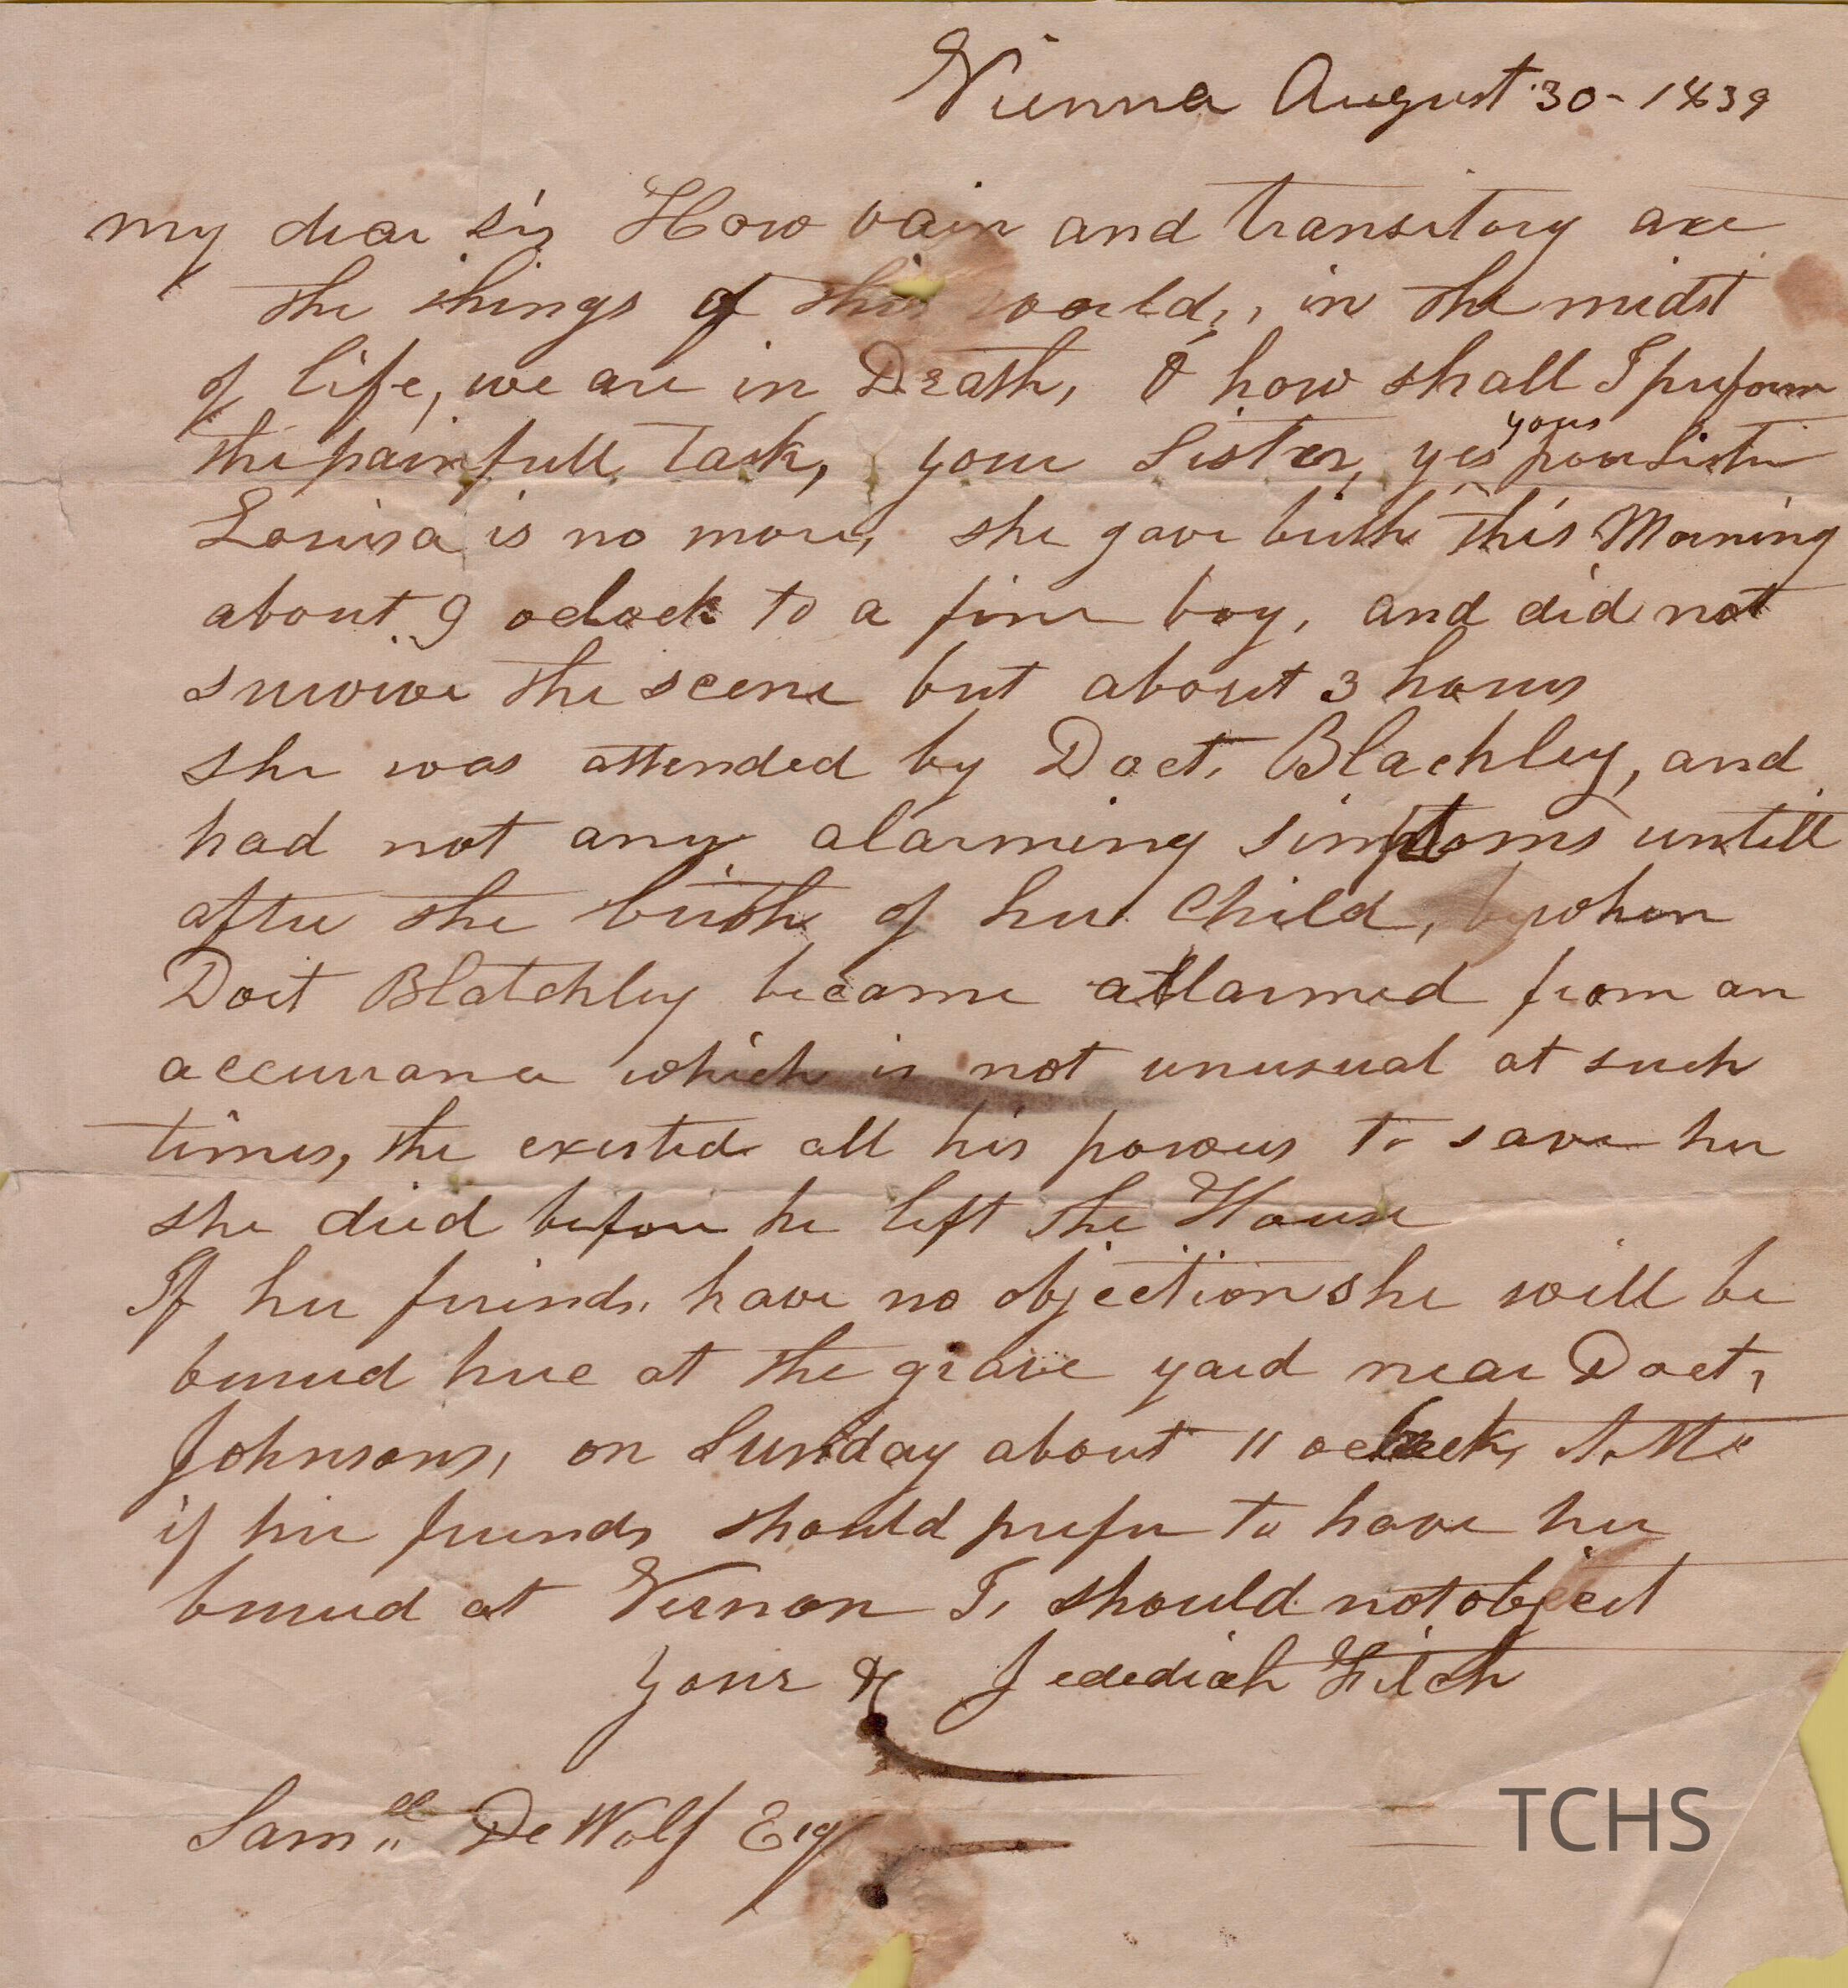 Vienna August 30 - 1839
my dear sir How vain and transitory are
the things of this world,, in the midst
of life, we are in Death, O how shall I preform
the painfull task, your Sister, yes your poor Sister
Louisa is no more, she gave birth this Morning
about 9 oclock to a fine boy, and did not
survive the scene but about 3 hours
she was attended by Doct. Blachley, and
had not any alarming simptoms untill
after the birth of her Child, when
Doct Blatchley became allarmed from an
accurrance which is not unusual at such
times, the exerted all his powers to save her
she died before he left the House
If her friends, have no objection she will be
burried here at the grave yard near Doct,
Johnsons, on Sunday about 11 oclock, A.M.
if her friends should prefer to have her
burried at Vernon I, should not object
Yours & Jedediah Fitch
Samll De Wolf Esq
TCHS